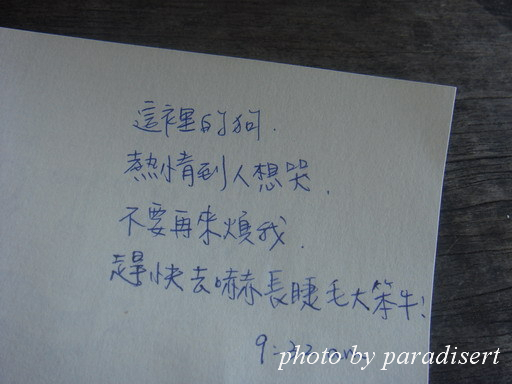 這裡的狗.
熱情到人想哭.
不要再來煩我.
趕快去嚇長睫毛大笨牛!
photo by paradisert